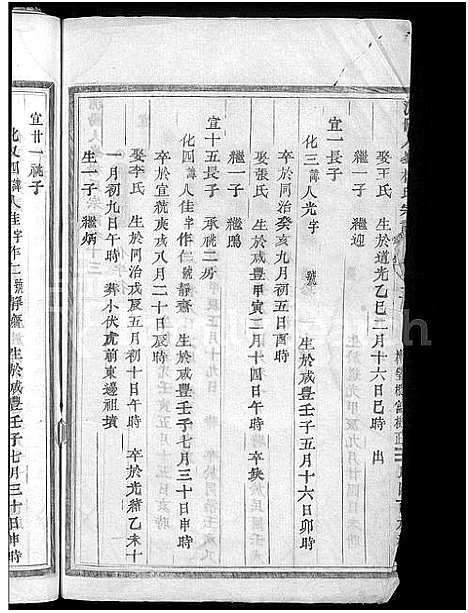 娶王氏 生於道光乙巳二月十六日巳時 出
繼一子 繼迎
宜一長子
化三諱人光字 號 生於咸豐壬子五月十六日卯時
卒於同治癸亥九月初五日酉時
娶張氏 生於咸豐甲寅二月十四日午時 卒缺
繼一子 繼鵬
宜十五長子 承祧二房
化四諱人佳字作仁號靜齋 生於咸豐壬子七月三十日申時
卒於宣統庚戌八月二十日辰時
娶李氏 生於同治戊辰五月初十日午時 卒於光緒乙未十
一月初九日午時 葬小伏虎前東邊祖墳
生一子 繼炳
宜廿一祧子
化又四諱人佳字作仁號靜齋 生於咸豐壬子七月三十日申時